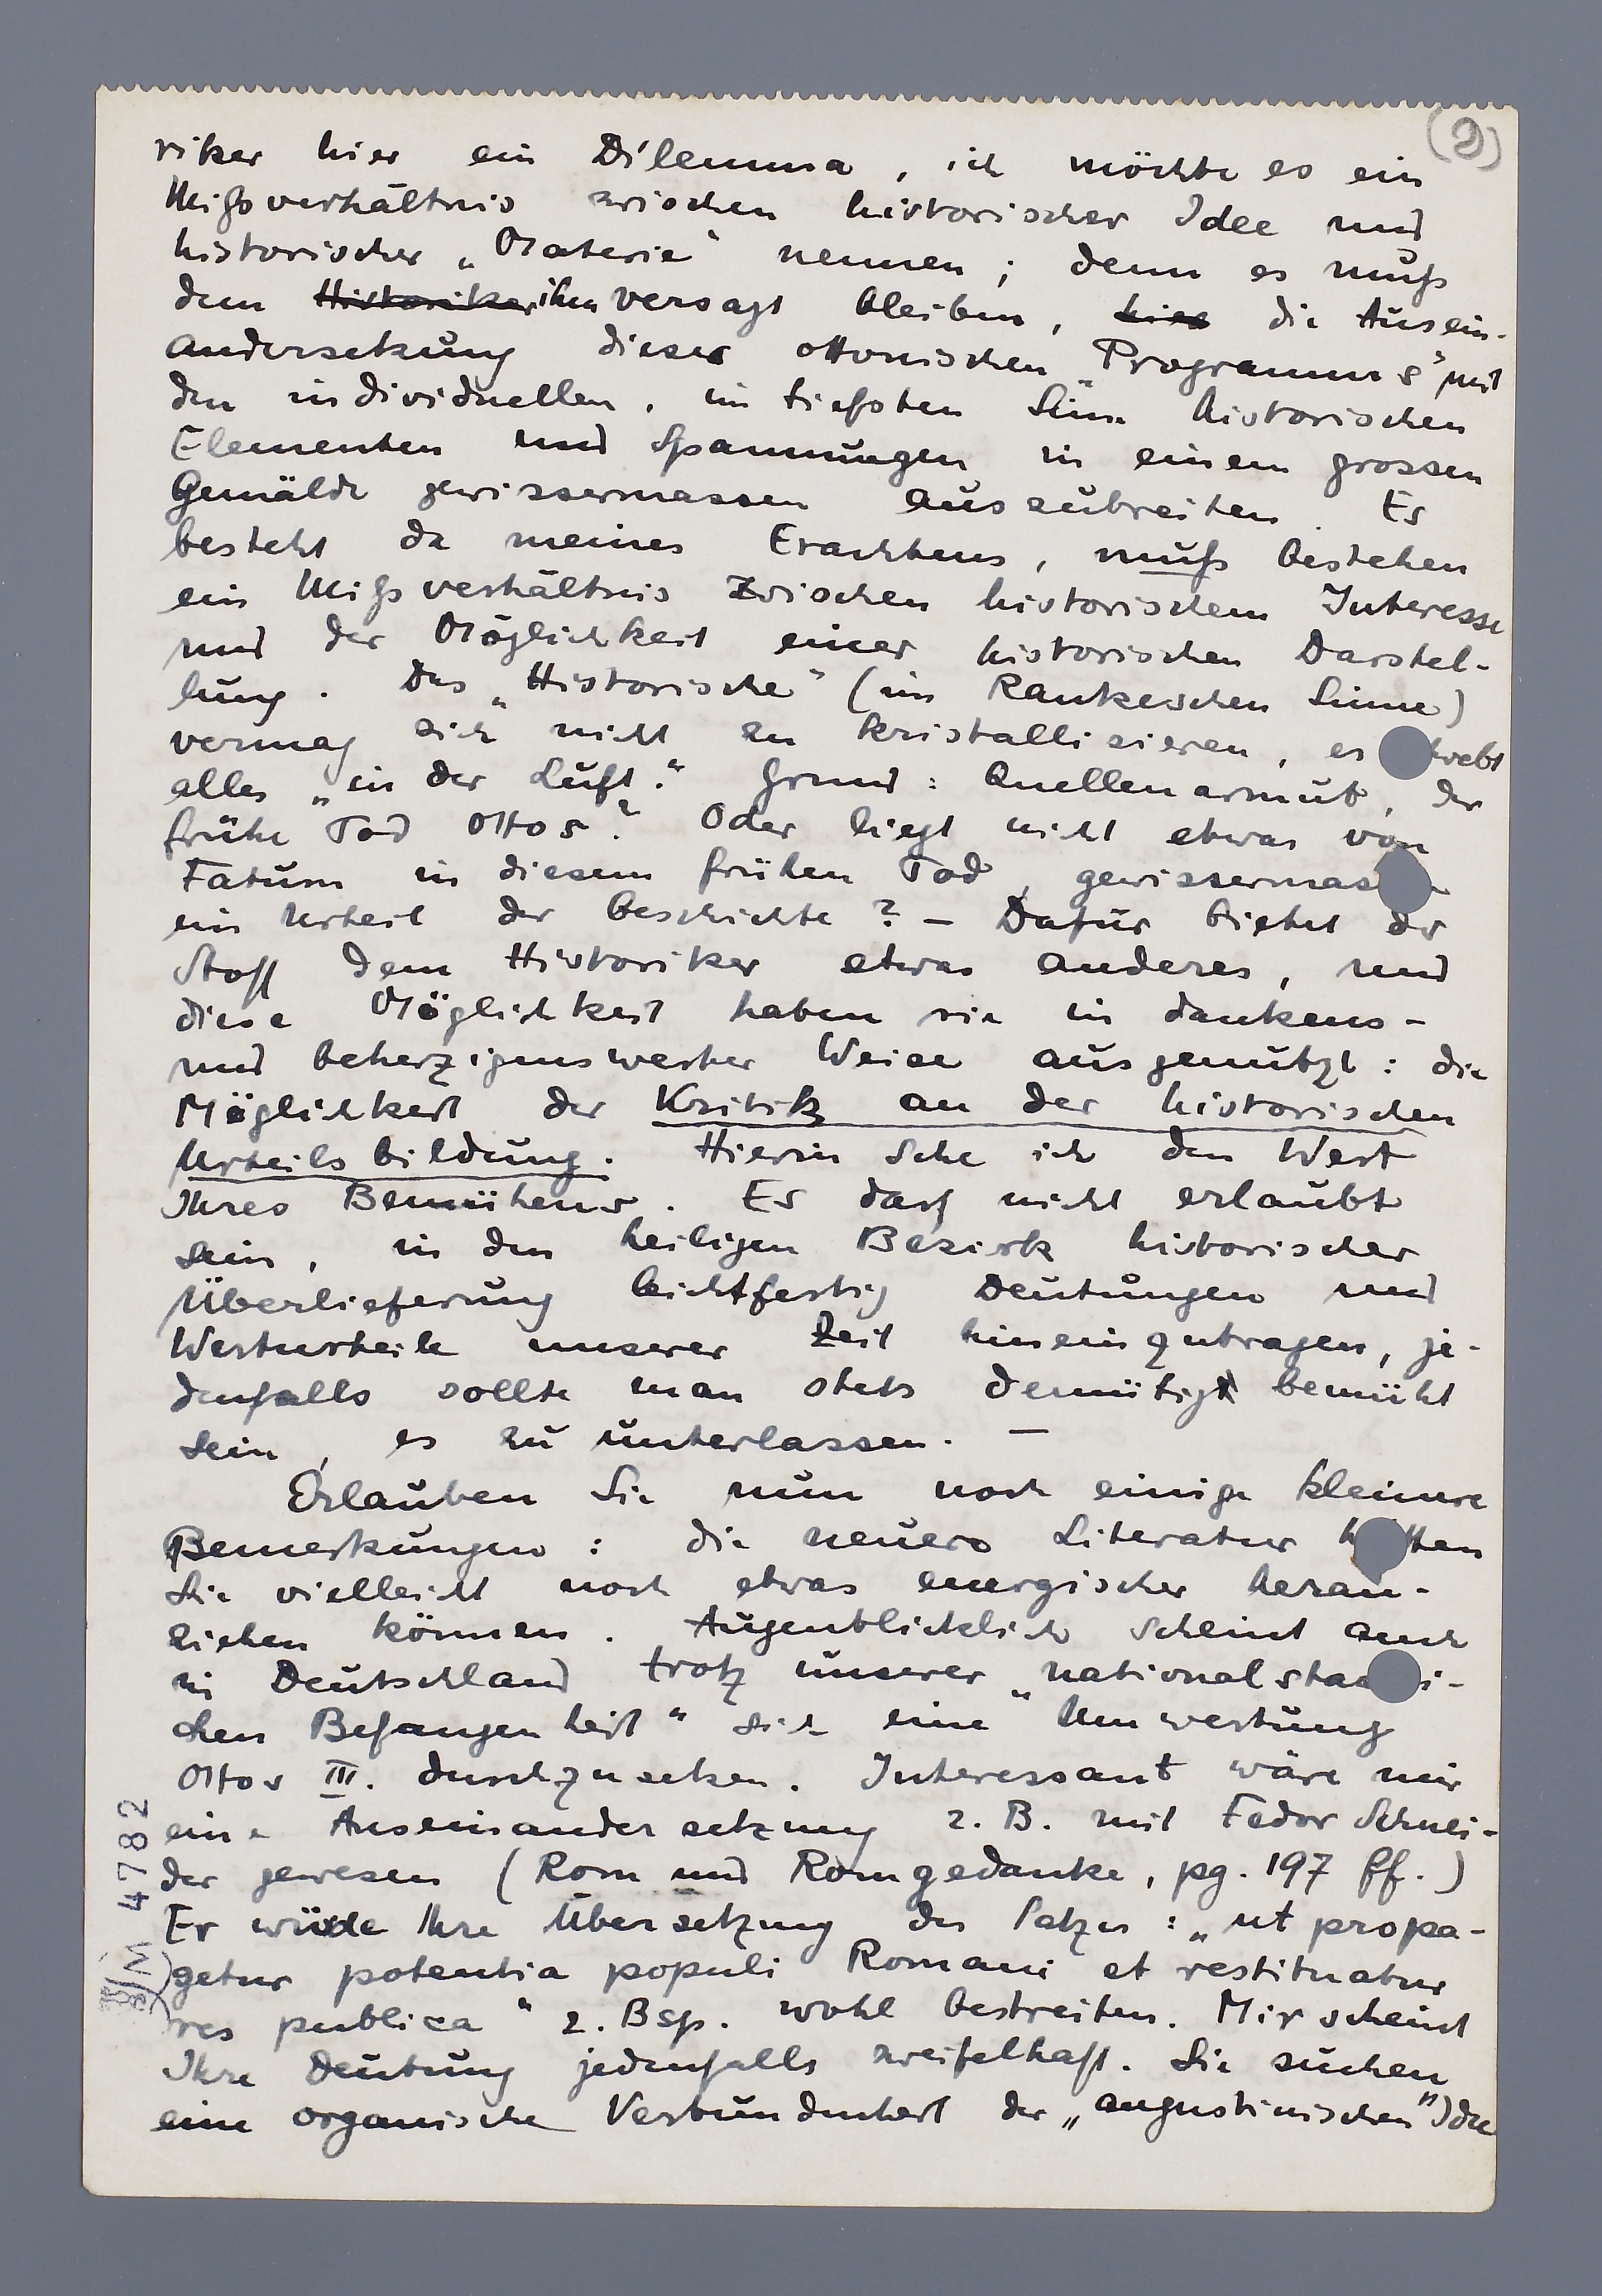 (2)
riker hier ein Dilemma, ich möchte es ein
Mißverhältnis zwischen historischer Idee und
historischer „Materie“ nennen; denn es muß
dem Historiker ihm versagt bleiben, hier die Ausein-
andersetzung dieses ottonischen „Programms“ mit
den individuellen, im tiefsten Sinn historischen
Elementen und Spannungen in einem grossen
Gemälde gewissermassen auszubreiten. Es
besteht da meines Erachtens, muß bestehen
ein Mißverhältnis zwischen historischem Interesse
und der Möglichkeit einer historischen Darstel-
lung. Das „Historische“ (im Rankeschen Sinne)
vermag sich nicht zu kristallisieren, es webt
alles „in der Luft.“ Grund: Quellenarmut, der
frühe Tod Ottos? Oder liegt nicht etwas von
Fatum in diesem frühen Tod, gewissermas
ein Urteil der Geschichte? – Dafür bietet der
Stoff dem Historiker etwas anderes, und
diese Möglichkeit haben sie in dankens-
und beherzigenswerter Weise ausgenutzt: die
Möglichkeit der Kritik an der historischen
Urteilsbildung. Hierin sehe ich den Wert
Ihres Bemühens. Es darf nicht erlaubt
sein, in den heiligen Bezirk historischer
Überlieferung leichtfertig Deutungen und
Werturteile unserer Zeit hineinzutragen, je-
denfalls sollte man stets demütig bemüht
sein, es zu unterlassen. –
Erlauben Sie nun noch einige kleinere
Bemerkungen: die neuere Literatur h tten
Sie vielleicht noch etwas energischer heran-
ziehen können. Augenblicklich scheint auch
in Deutschland trotz unserer „nationalstaa i-
chen Befangenheit“ sich eine Umwertung
Ottos III. durchzusetzen. Interessant wäre mir
eine Auseinandersetzung z. B. mit Fedor Schnei-
der gewesen (Rom und Romgedanke, pg. 197 ff.)
Er würde Ihre Übersetzung des Satzes: „ut propa-
getur potentia populi Romani et restituatur
res publica“ z. Bsp. wohl bestreiten. Mir scheint
Ihre Deutung jedenfalls zweifelhaft. Sie suchen
eine organische Verbundenheit der „augustinischen“ Idee
4782